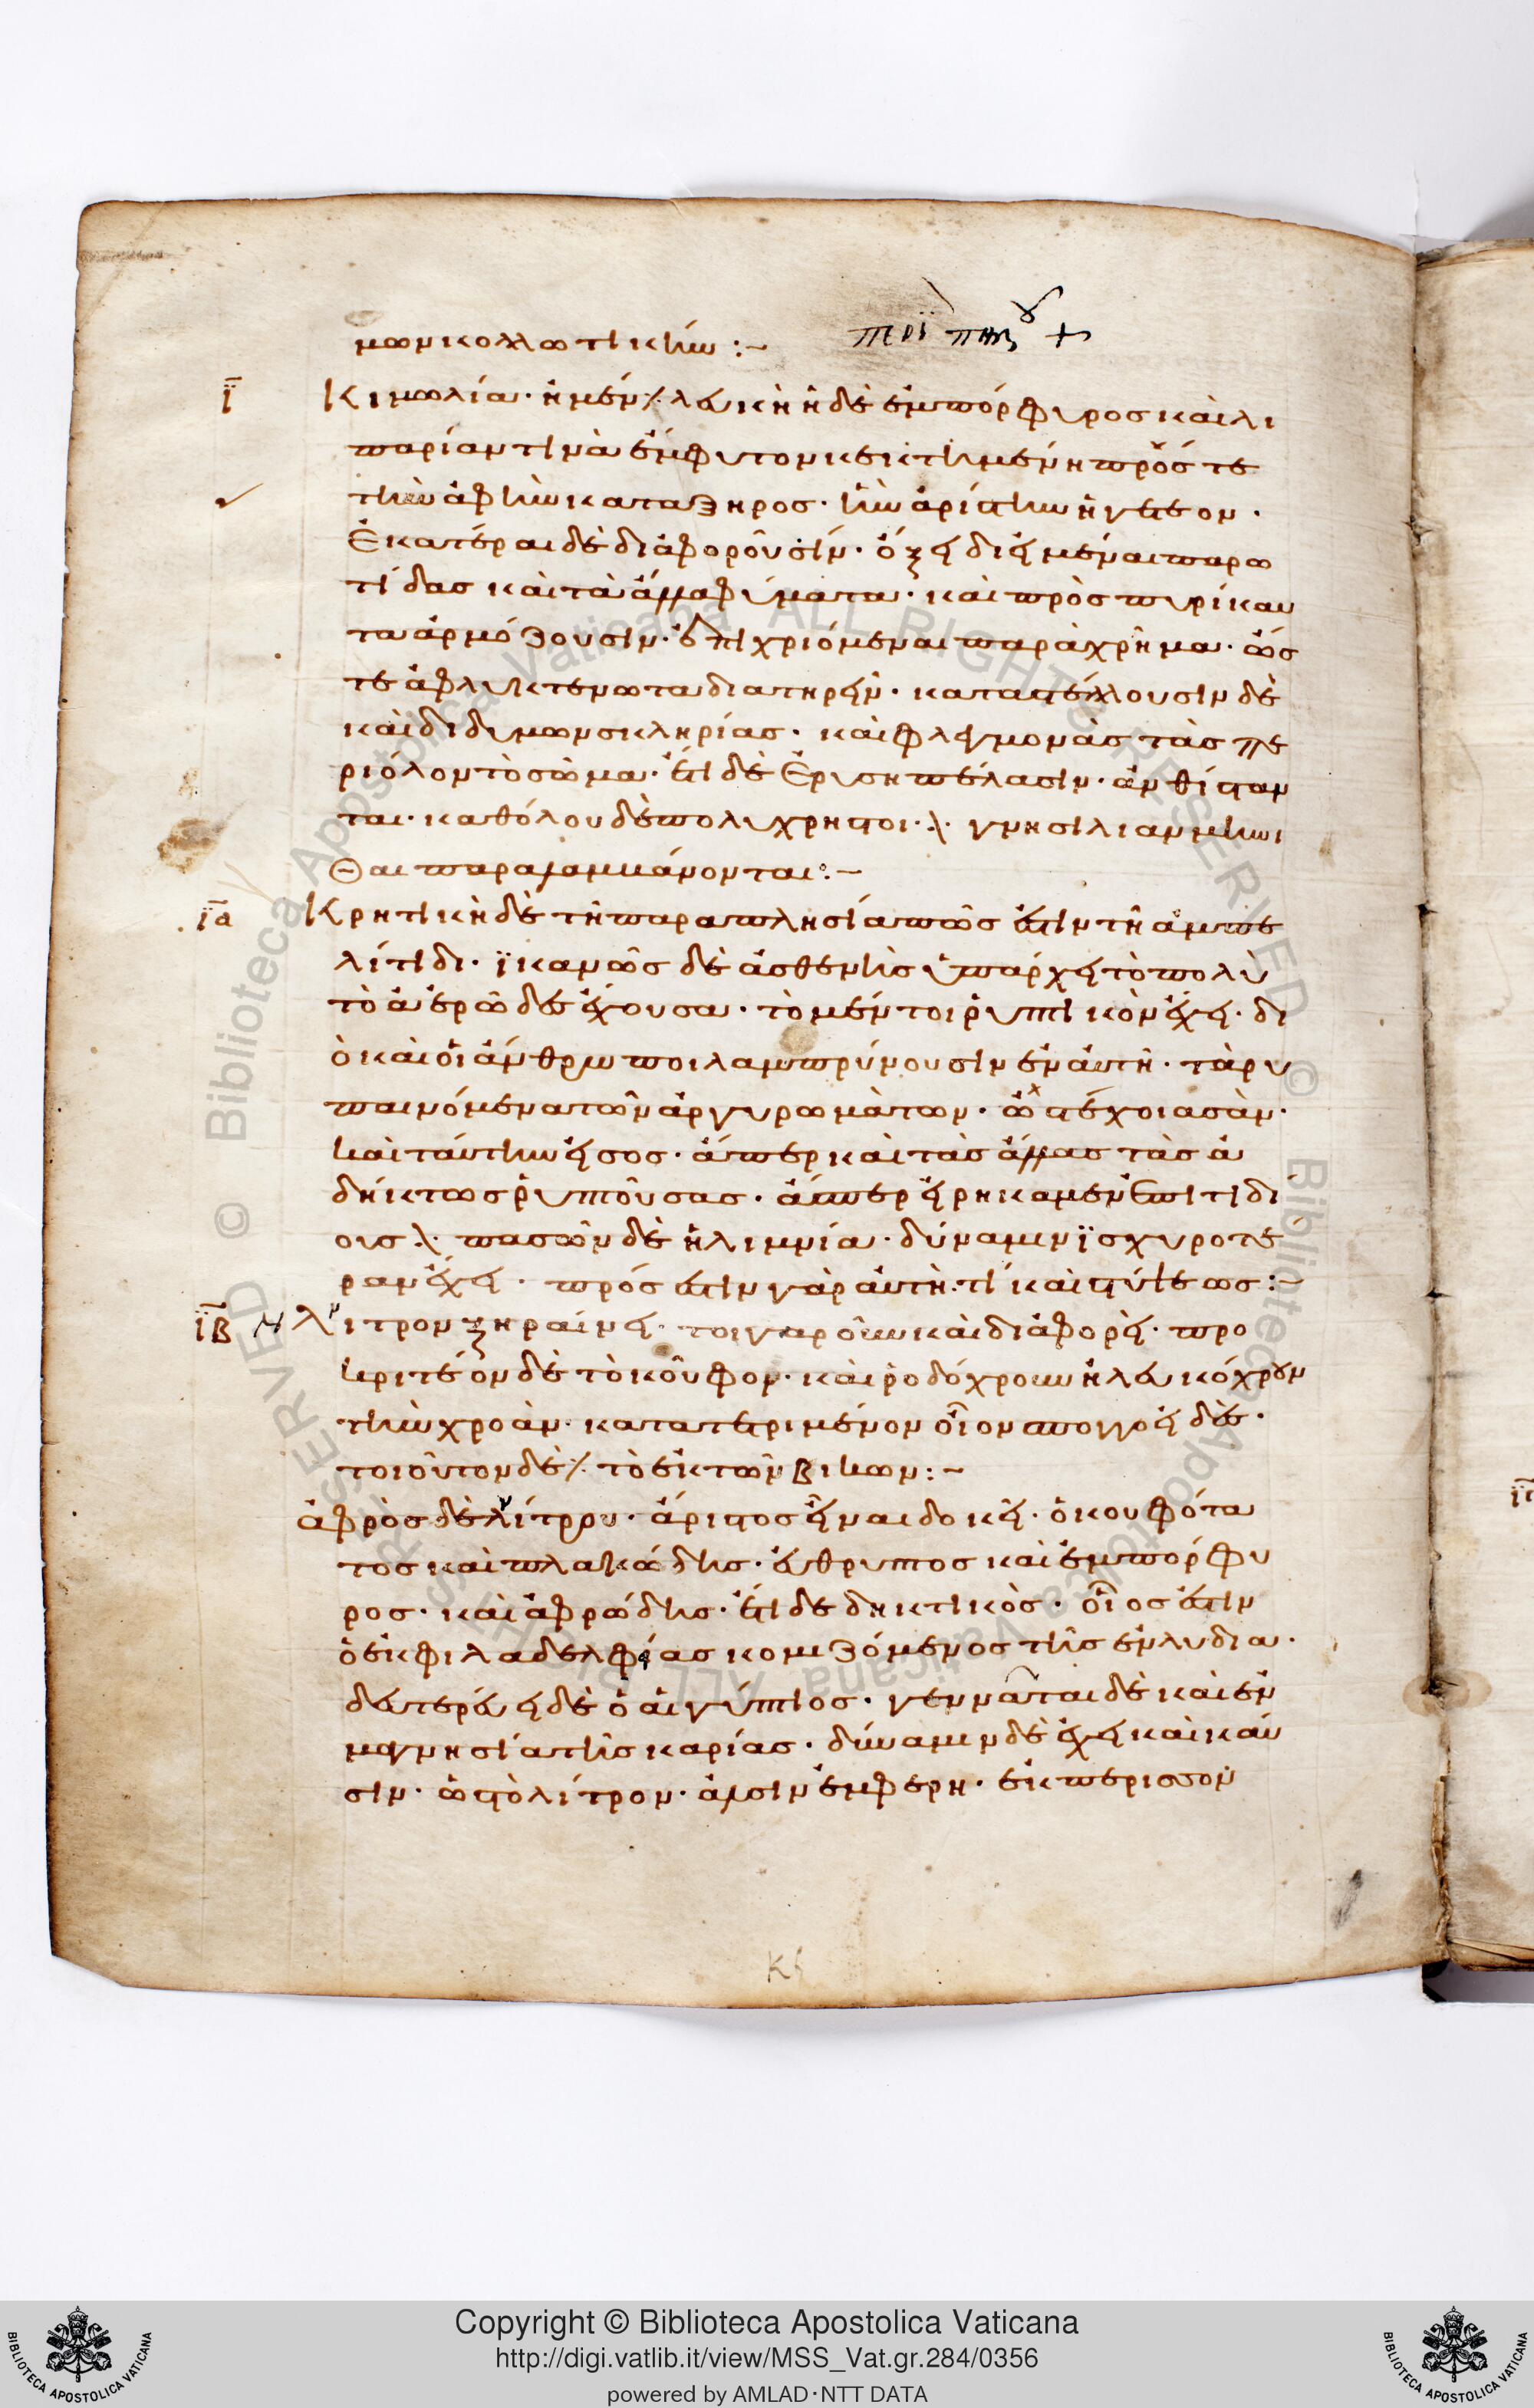 μων κολλωτικήν :-
περὶ πηλοῦ +
ϊ Κιμωλία· ἡ μέν ⁒ λευκὴ ἡ δὲ ἐμπόρφυρος καὶ λι
παρίαν τινὰ ἔμφυτον κεκτημένη πρός τε
τὴν ἁφὴν καταζηρος· ἣν ἀρίστην ἡγητέον·
Ἑκάτεραι δὲ διαφοροῦσιν· ὄξει διειμέναι παρω
τίδας καὶ τὰ ἄλλα φύματα· καὶ πρὸς πυρίκαυ
τα ἁρμόζουσιν· ἐπιχριόμεναι παραχρῆμα· ὥς
τε ἀφλυκτένωτα διατηρεῖν· καταστέλλουσιν δὲ
καὶ διδύμων σκληρίας· καὶ φλεγμονὰς τὰς πε
ρι όλον τὸ σῶμα· ἔτι δὲ Ἐρυσιπέλασιν· ἀνθίσταν
ται· καθόλου δὲ πολύχρηστοι·
Θαι παραλαμβάνονται :-
ϊα Κρητικὴ δὲ τῆ παραπλησία πως ἐστιν τῆ ἀμπε
λίτιδι· ϊκανῶς δὲ ἀσθενὴς ὑπάρχει τὸ πολὺ
τὸ ἀερῶδες ἔχουσα· τὸ μέντοι ῥυπτικὸν ἔχει· δι
ὸ καὶ οἱ ἄνθρωποι λαμπρύνουσιν ἐν αὐτῆ· τὰ ρυ
παινόμενα τῶν ἀργυρωμάτων·
καὶ ταύτην εἰς ὅσ· ἅπερ καὶ τὰς ἄλλας τὰς ἀ
δήκτως ῥυπτούσας· ἅπερ εἰρήκαμεν ἐπὶ τιδί
οις ⁒ πασῶν δὲ ἡ λιμνία· δύναμιν ϊσχυροτέ
ραν ἔχει· πρός ἐστιν γὰρ αὐτὴ· τί καὶ στύψεως :-
ϊβ λίτρον ξηραίνει· τοιγαροῦν καὶ διαφορεῖ· προ
κριτέον δὲ τὸ κοῦφον· καὶ ῥοδόχρουν ἢ λευκόχρουν
τὴν χροάν· κατατετριμένον οἷον σπογγοειδές·
τοιοῦτον δέ ⁒ τὸ ἐκ τῶν βικων :-
ἀφρὸς δὲ λίτρου· ἄριστος εἶναι δοκεῖ· ὁ κουφότα
τος καὶ πλακώδης· εὔθρυπτος καὶ ἐμπόρφυ
ρος· καὶ ἀφρώδης· ἔτι δὲ δηκτικὸς· οἷος ἐστιν
ὁ ἐκ φιλαδελφείας κομιζόμενος τῆς ἐν λυδία·
δευτερεύει δὲ ὁ αἰγύπτιος· γεννᾶται δὲ καὶ ἐν
μαγνησία τῆς καρίας· δύναμιν δὲ ἔχει καὶ καῦ
σιν· ὡς τὸ λίτρον· ἁλσὶν ἐμφερη· ἐκ περισσοῦ
κς
Copyright © Biblioteca Apostolica Vaticana
http://digi.vatlib.it/view/MSS_Vat.gr.284/0356
powered by AMLAD·NTT DATA